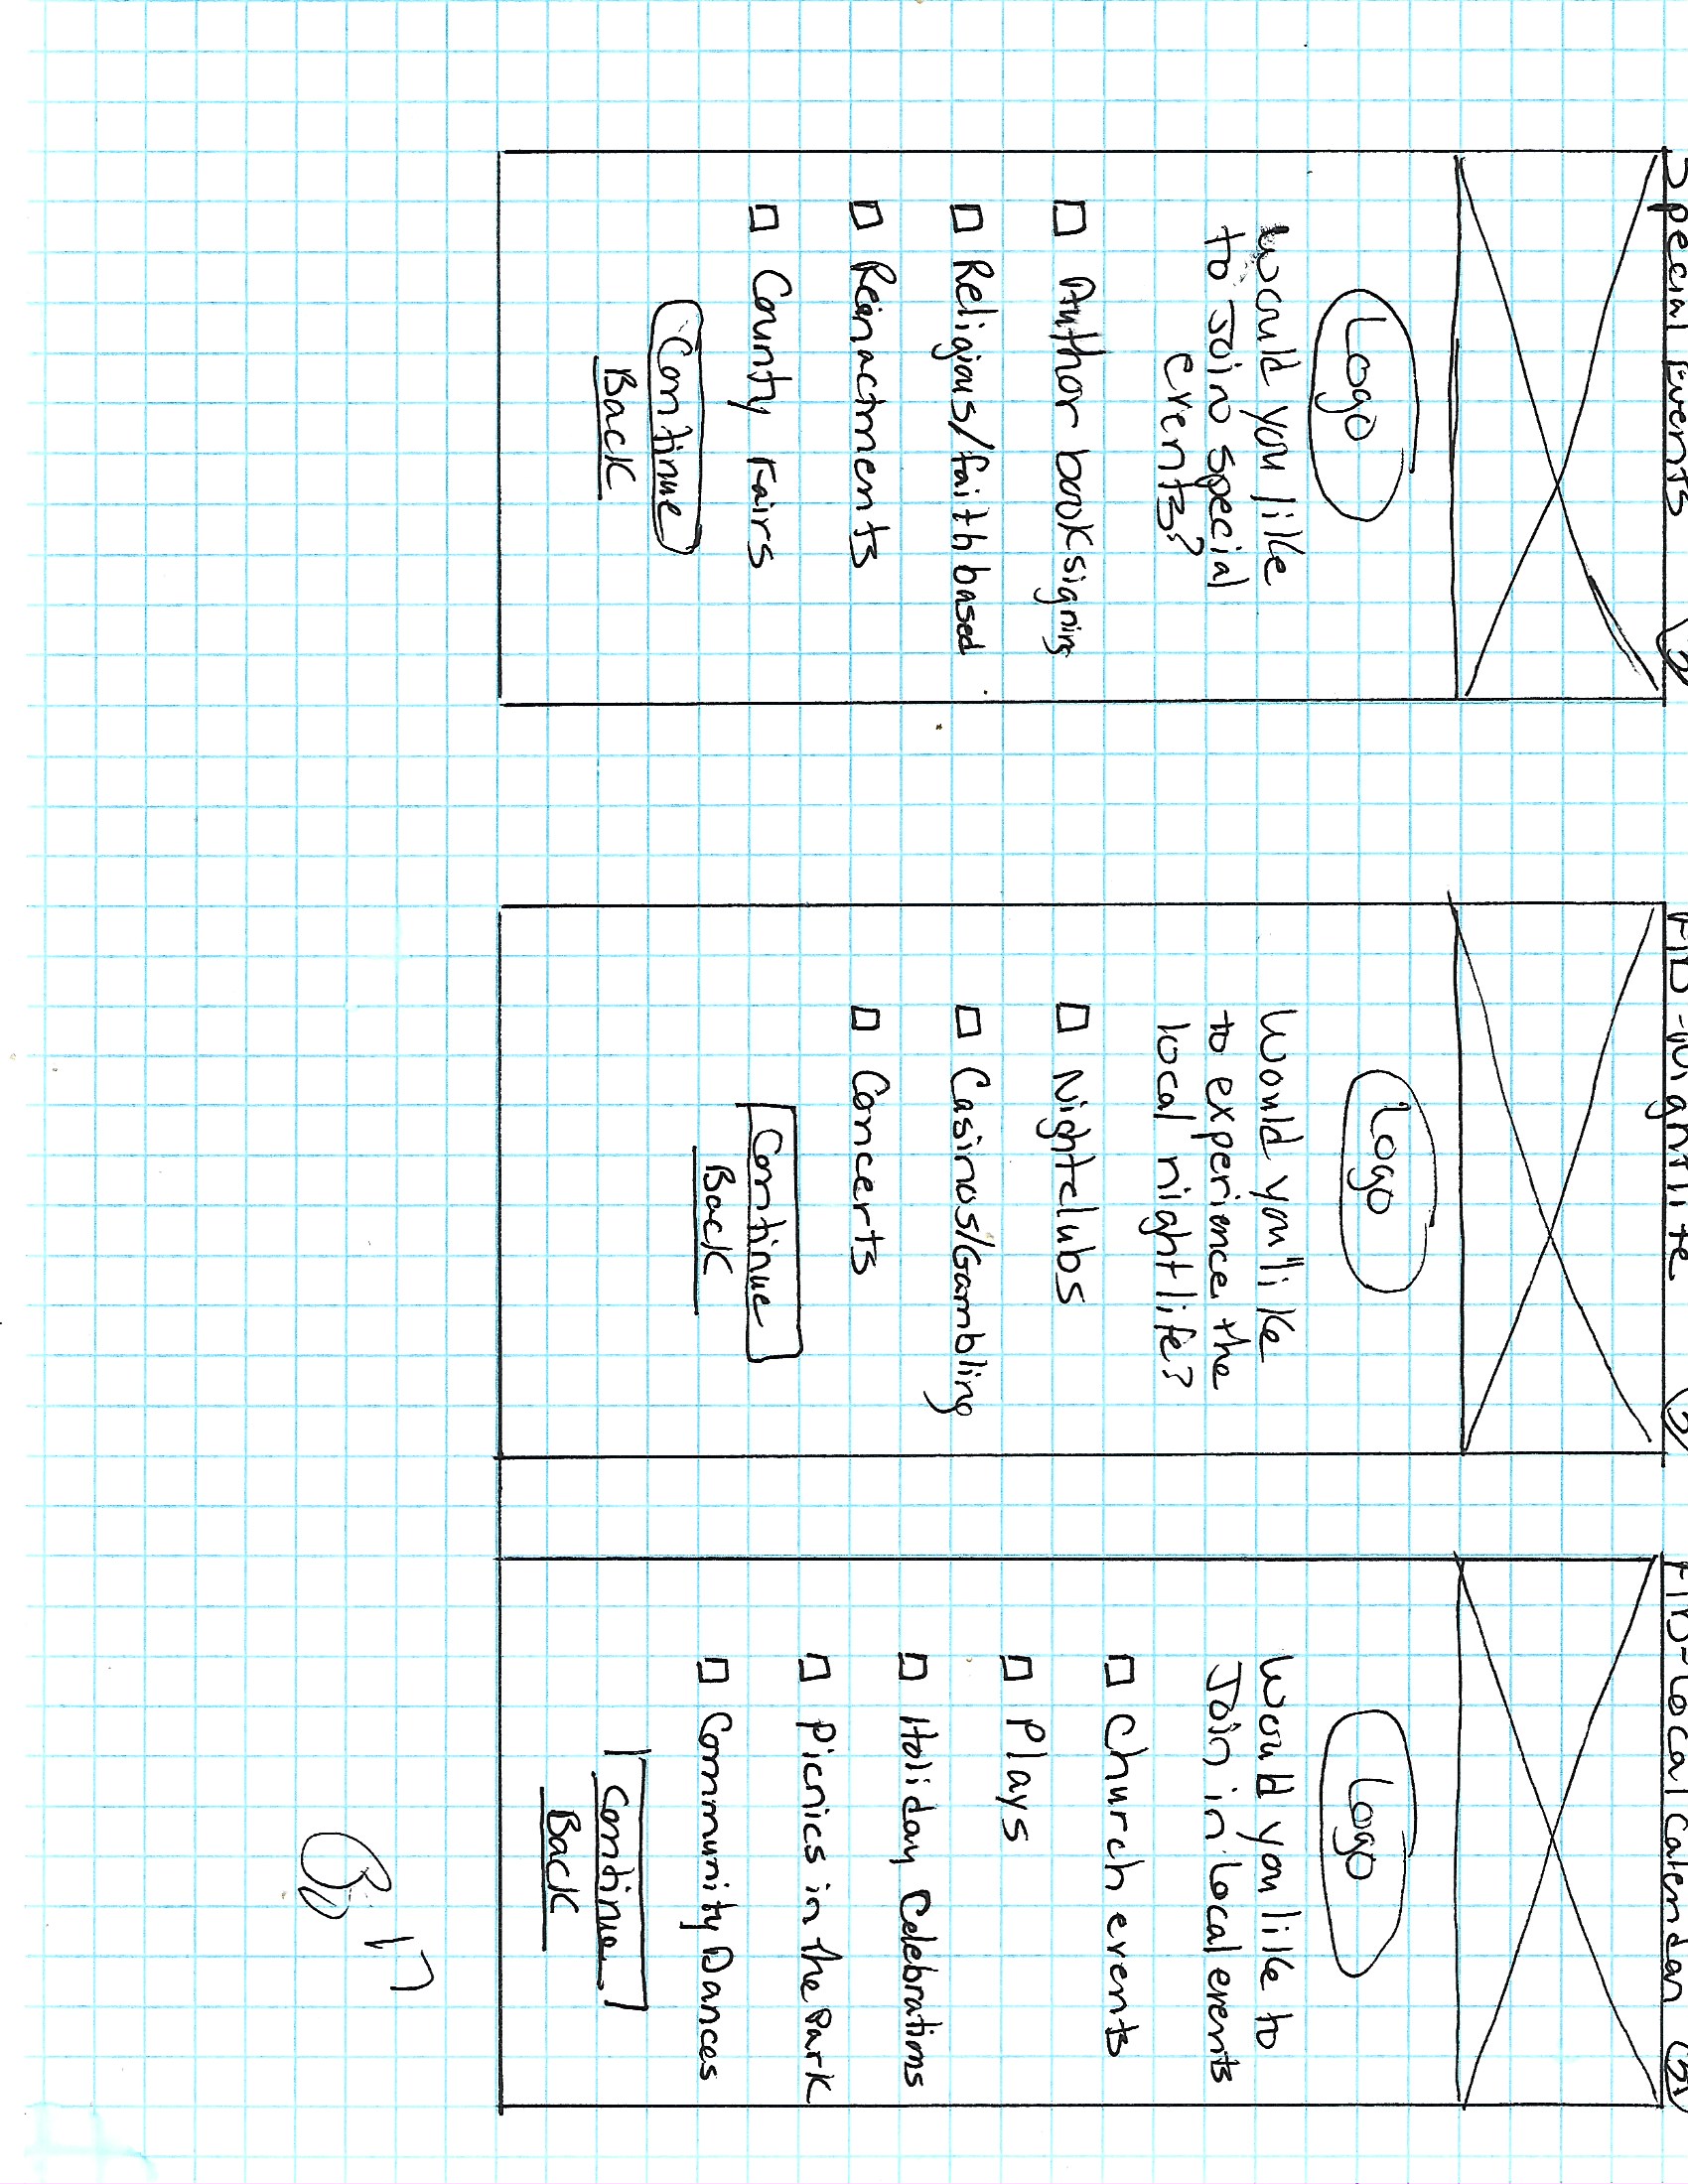 Special Events
Logo
Would you like
to Join special
events?
Author book signing
Religious/faith based
Reinactments
County Fairs
Continue
Back
Nightlife
Logo
Would you like
to experience the
local night life?
Nightclubs
Casinos/Gambling
Concerts
Continue
Back
Local Calendar
Logo
Would you like to
Join in local events
Church events
Plays
Holiday Celebrations
Picnics in the Park
Community Dances
Continue
Back
17